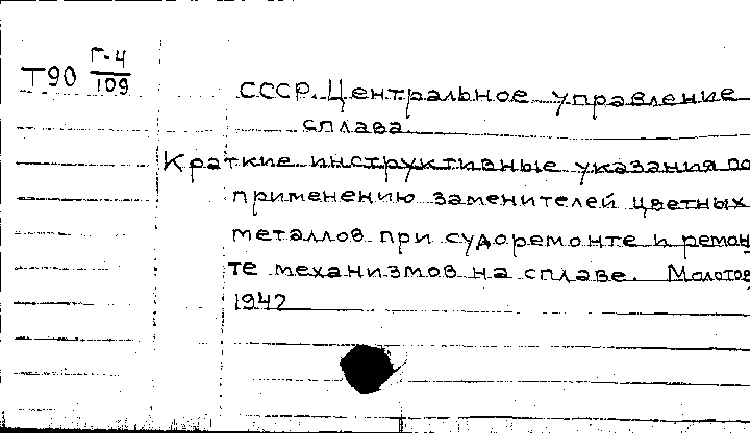 Т90 Г-4
109
СССР. Центральное управление
сплава
Краткие инструктивные указания по
применению заменителей цветных
металлов при судоремонте и ремон
те механизмов на сплаве. Молотов
1942